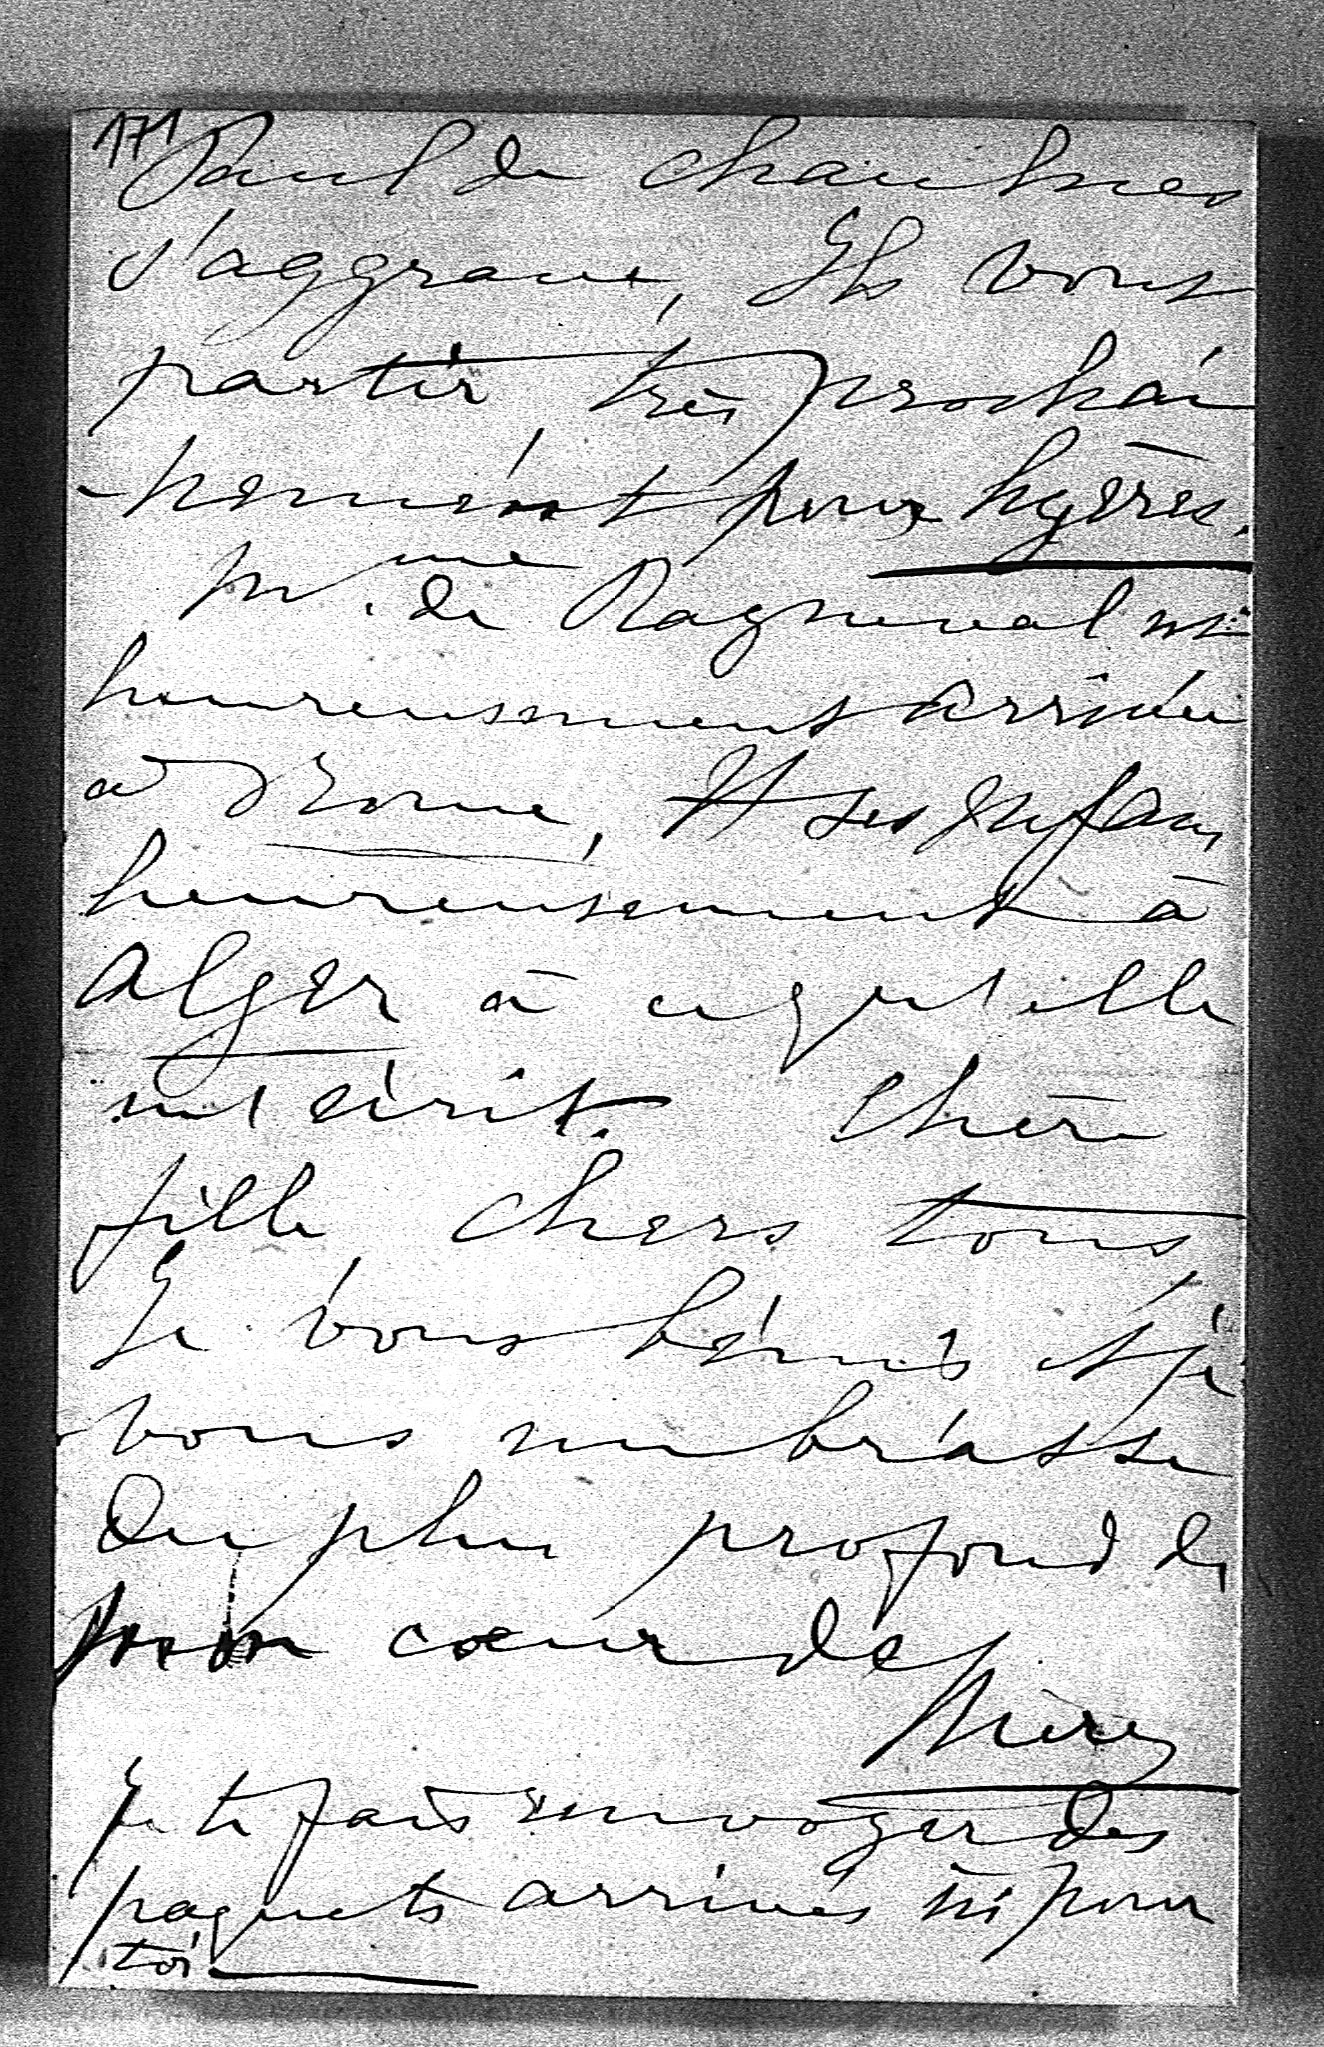 171
Paul de Chaulnes
s'aggrave, Ils vont
partir très prochai
-nement pour hyères.
Mme. de Rayneval est
heureusement arrivée
à Rome, Et ses enfans
heureusement à
Alger à ce qu'elle
m'écrit. Chère
fille, chers tous
Je vous bénis et je
vous embrasse
Du plus profond de
mon cœur de
Mère
Je te fais envoyer des
paquets arrivés ici pour
toi